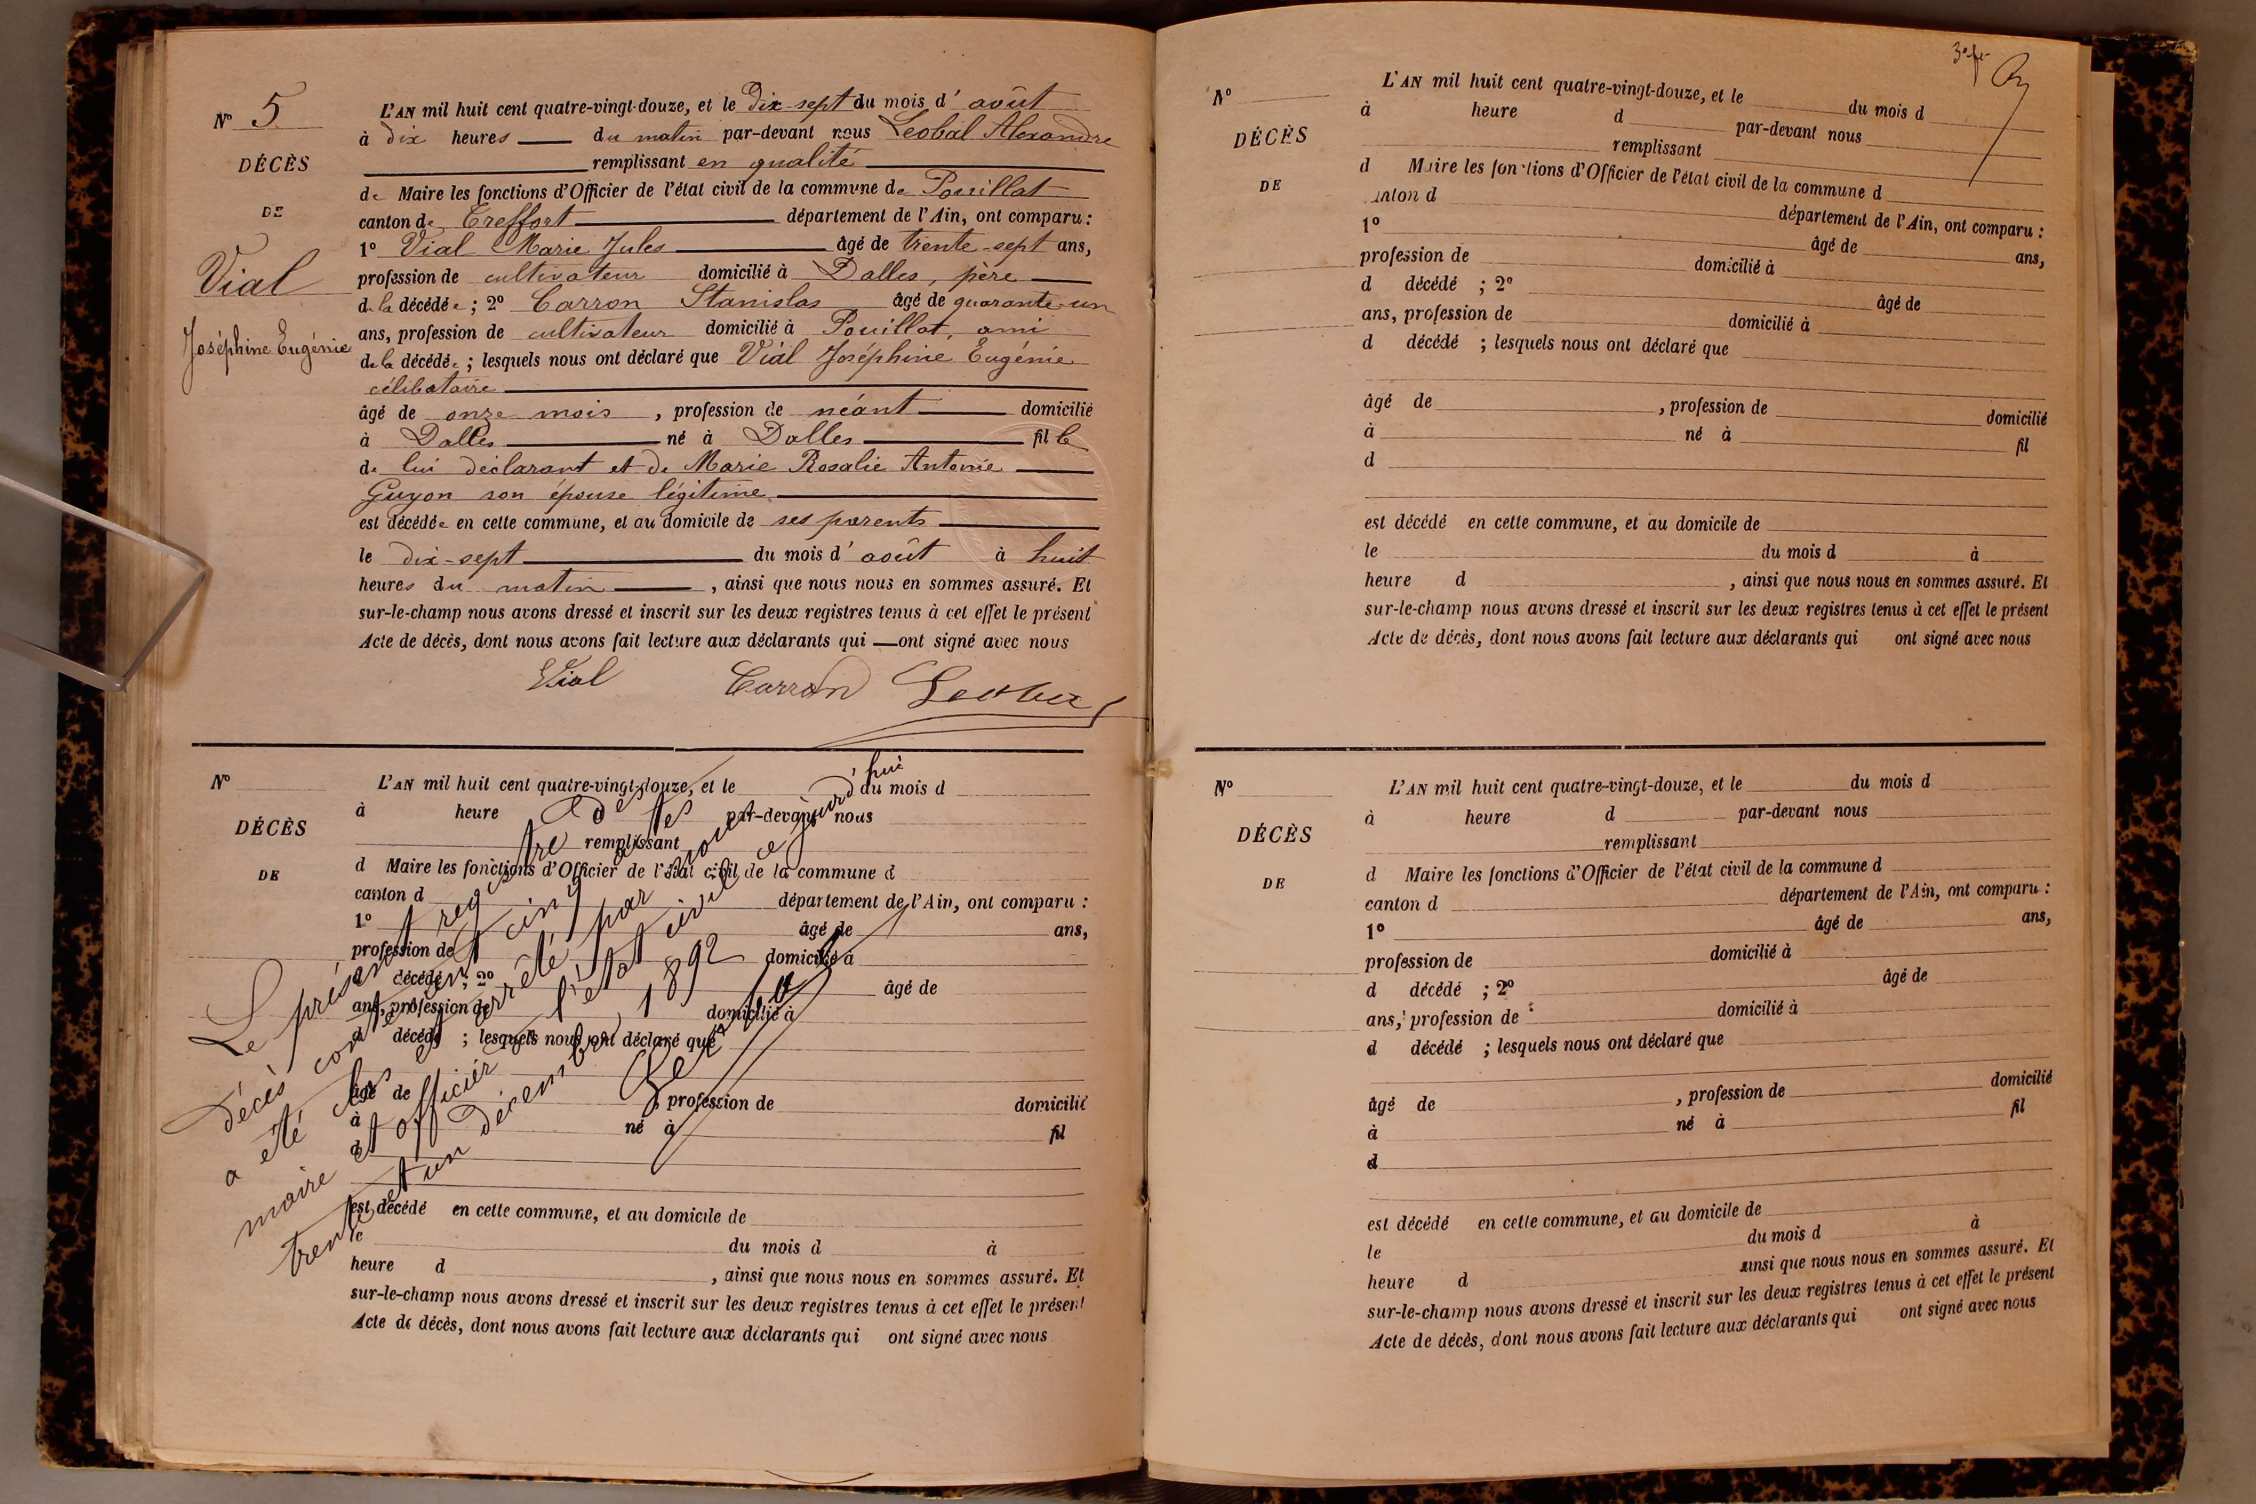 N° 5
DÉCÈS
DE
Vial
Joséphine Eugénie
L'AN mil huit cent quatre-vingt-douze, et le dix-sept du mois d'août
à dix heures du matin par-devant nous Léobal Alexandre
remplissant en qualité
de Maire les fonctions d'Officier de l'état civil de la commune de Pouillat
canton de Treffort département de l'Ain, ont comparu :
1° Vial Marie Jules âgé de trente-sept ans,
profession de cultivateur domicilié à Dalles, père
de la décédée ; 2° Carron Stanislas âgé de quarante-un
ans, profession de cultivateur domicilié à Pouillat, ami
de la décédée ; lesquels nous ont déclaré que Vial Joséphine, Eugénie
célibataire
âgé de onze mois, profession de néant domicilié
à Dalles né à Dalles fille
de lui déclarant et de Marie Rosalie Antonie
Guyon son épouse légitime
est décédée en cette commune, et au domicile de ses parents
le dix-sept du mois d'août à huit
heures du matin, ainsi que nous nous en sommes assuré. Et
sur-le-champ nous avons dressé et inscrit sur les deux registres tenus à cet effet le présent
Acte de décès, dont nous avons fait lecture aux déclarants qui ont signé avec nous
Vial Carron
N°
DÉCÈS
DE
L'AN mil huit cent quatre-vingt-douze, et le du mois d
à heure d par-devant nous
remplissant
d Maire les fonctions d'Officier de l'état civil de la commune d
canton d département de l'Ain, ont comparu :
1° âgé de ans,
profession de domicilié à
d décédé ; 2° âgé de
ans, profession de domicilié à
d décédé ; lesquels nous ont déclaré que
âgé de , profession de domicilié
à né à fil
d
est décédé en cette commune, et au domicile de
le du mois d à
heure d , ainsi que nous nous en sommes assuré. Et
sur-le-champ nous avons dressé et inscrit sur les deux registres tenus à cet effet le présent
Acte de décès, dont nous avons fait lecture aux déclarants qui ont signé avec nous
Le présent registre des
décès contenant cinq actes
a été clos et arrêté par nous
maire et officier de l'état civil ce jourd'hui
trente et un décembre 1892
3e f.
N°
DÉCÈS
DE
L'AN mil huit cent quatre-vingt-douze, et le du mois d
à heure d par-devant nous
remplissant
d Maire les fonctions d'Officier de l'état civil de la commune d
canton d département de l'Ain, ont comparu :
1° âgé de ans,
profession de domicilié à
d décédé ; 2° âgé de
ans, profession de domicilié à
d décédé ; lesquels nous ont déclaré que
âgé de , profession de domicilié
à né à fil
d
est décédé en cette commune, et au domicile de
le du mois d à
heure d , ainsi que nous nous en sommes assuré. Et
sur-le-champ nous avons dressé et inscrit sur les deux registres tenus à cet effet le présent
Acte de décès, dont nous avons fait lecture aux déclarants qui ont signé avec nous
N°
DÉCÈS
DE
L'AN mil huit cent quatre-vingt-douze, et le du mois d
à heure d par-devant nous
remplissant
d Maire les fonctions d'Officier de l'état civil de la commune d
canton d département de l'Ain, ont comparu :
1° âgé de ans,
profession de domicilié à
d décédé ; 2° âgé de
ans, profession de domicilié à
d décédé ; lesquels nous ont déclaré que
âgé de , profession de domicilié
à né à fil
d
est décédé en cette commune, et au domicile de
le du mois d à
heure d ainsi que nous nous en sommes assuré. Et
sur-le-champ nous avons dressé et inscrit sur les deux registres tenus à cet effet le présent
Acte de décès, dont nous avons fait lecture aux déclarants qui ont signé avec nous